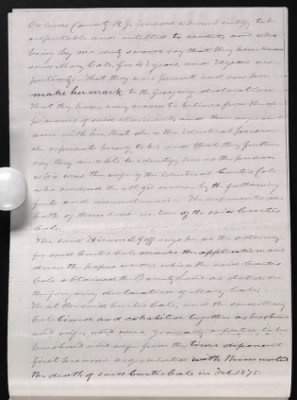 Orleans County N.Y. persons whom I certify to be
respectable and entitled to credit, and who
being by me duly sworn say that they have known
said Mary Cole, for 43 years, and 30 years re-
spectively. That they were present and saw her
make her mark to the foregoing declaration
That they have every reason to believe from the ap-
pearance of said claimant and their acquaint-
ance with her, that she is the identical person
she represents herself to be; and that they further
say they are able to identify her as the person
who was the wife of the identical Curtis Cole
who rendered the alleged service by the following
facts and circumstances.
both of them
Cole.
The said Hiram Goff says he as the attorney
for said Curtis Cole made the application and
drew the papers under which the said Curtis
Cole obtained the Bounty Land as stated in
the foregoing declaration of Mary Cole;
That the said Curtis Cole, and the said Mary
Cole lived and cohabited together as husband
and wife, and were generally reputed to be
husband and wife from the time deponent
first became acquainted with them until
the death of said Curtis Cole in Feb. 1875.